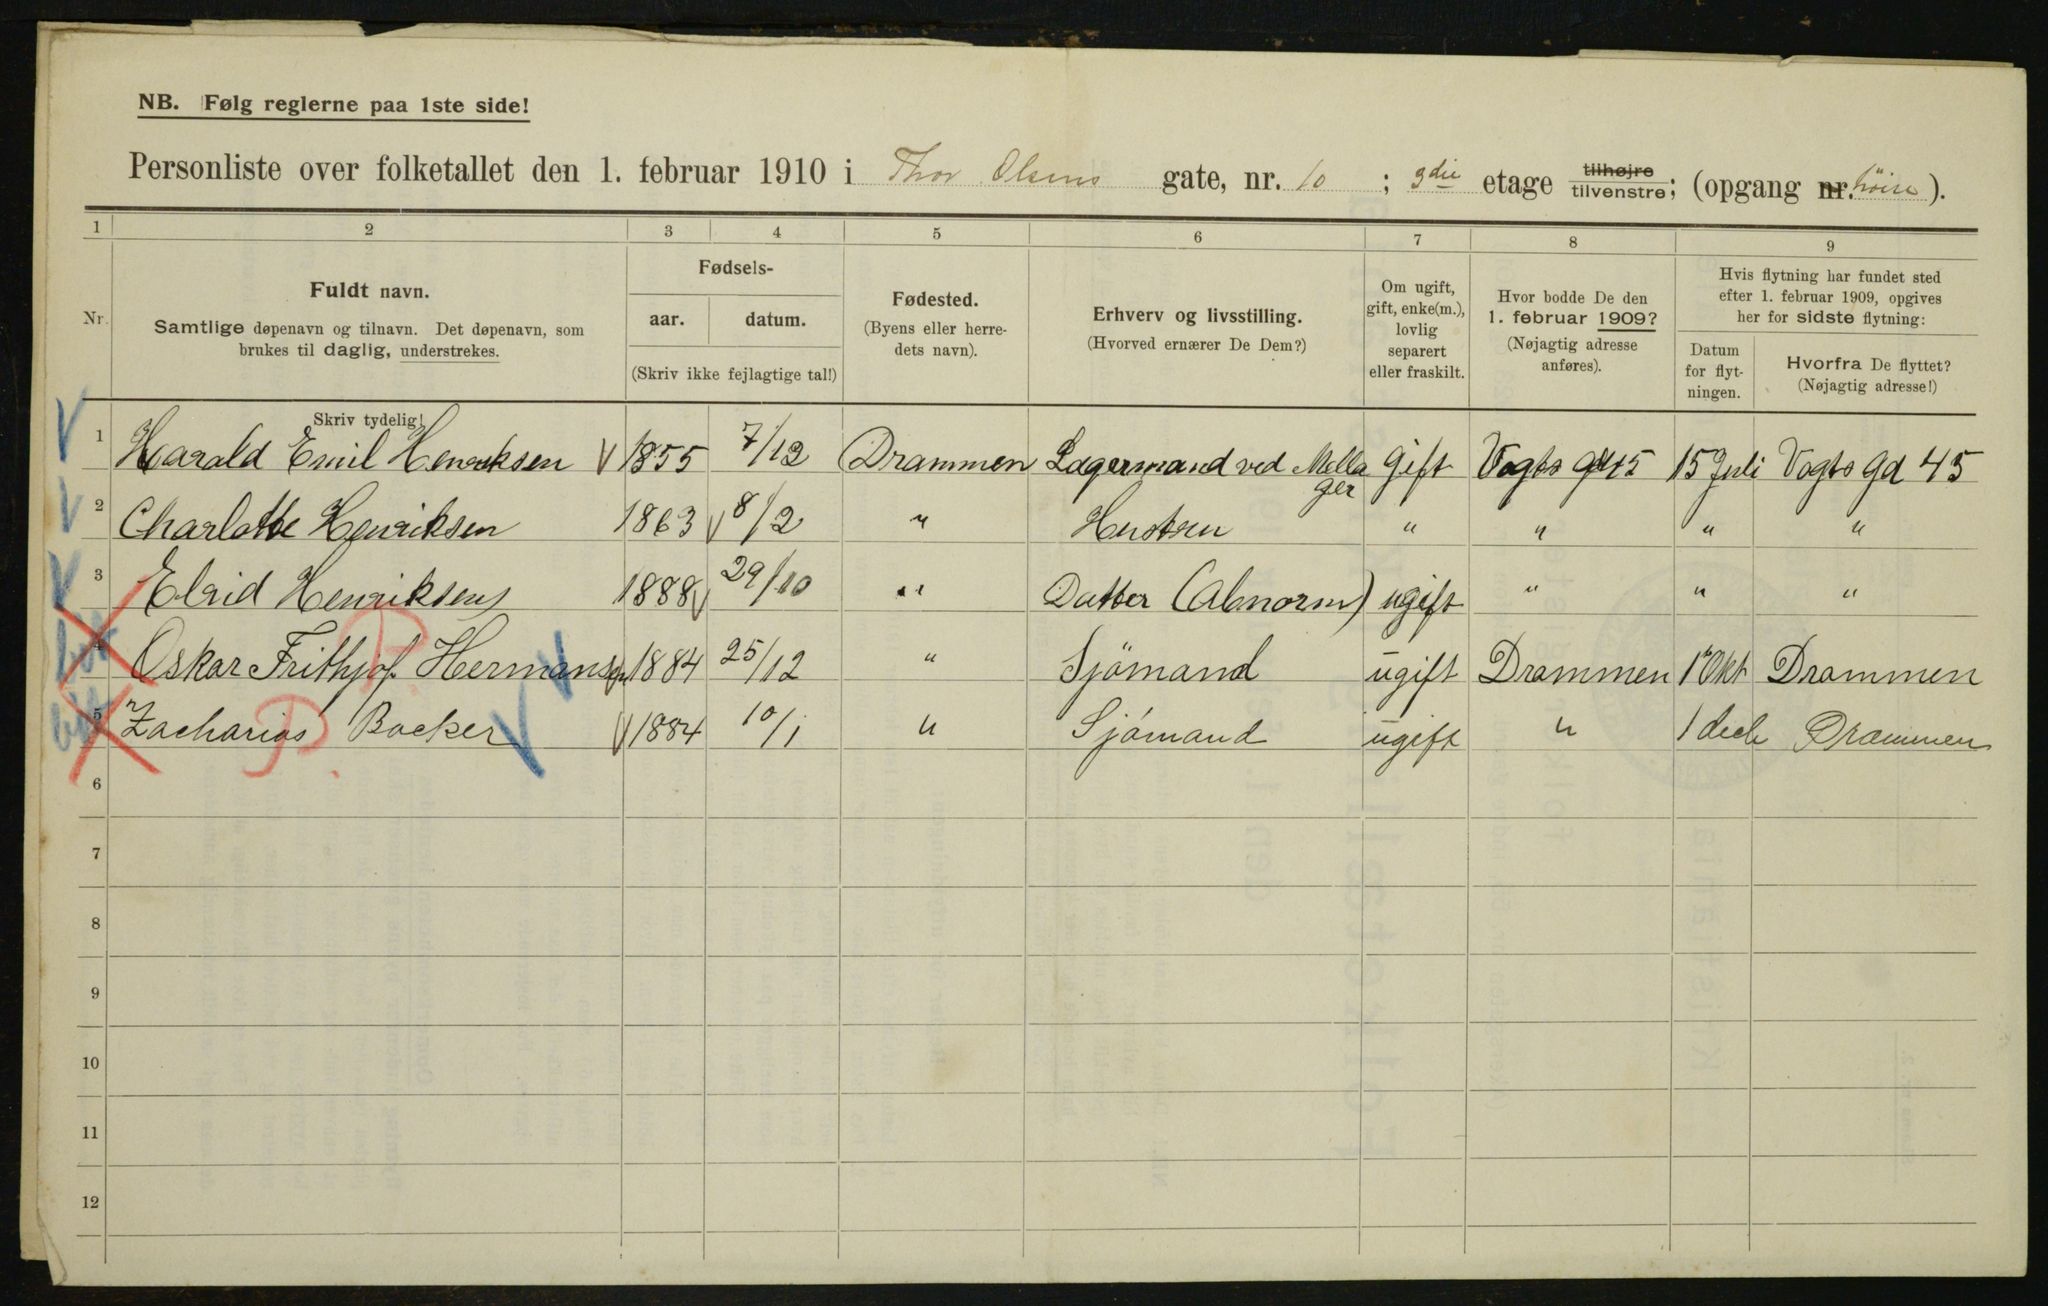 NB. Følg reglerne paa 1ste side!
Personliste over folketallet den 1. februar 1910 i Thor Olsens gate, nr. 10 ; 3die etage tilhøjre tilvenstre; (opgang nr. höire ).
1 2 3 4 5 6 7 8 9
Nr.
Fuldt navn.
Samtlige døpenavn og tilnavn. Det døpenavn, som
brukes til daglig, understrekes.
Skriv tydelig!
Fødsels-
aar. datum.
(Skriv ikke fejlagtige tal!)
Fødested.
(Byens eller herre-
dets navn).
Erhverv og livsstilling.
(Hvorved ernærer De Dem?)
Om ugift,
gift, enke(m.),
lovlig
separert
eller fraskilt.
Hvor bodde De den
1. februar 1909?
(Nøjagtig adresse
anføres).
Hvis flytning har fundet sted
efter 1. februar 1909, opgives
her for sidste flytning:
Datum
for flyt-
ningen.
Hvorfra De flyttet?
(Nøjagtig adresse!)
1 Harald Emil Henriksen 1855 7/12 Drammen Lagermand ved Mella Gift Vogts gd 45 15 Juli Vogts gd 45
ger
2 Charlotte Henriksen 1863 8/2 " Hustru " " " "
3 Henriksen 1888 29/10 " Datter (Abnorm) ugift " " "
4 Oskar Frithjof Hermansen 1884 25/12 " Sjömand ugift Drammen 1 Okt Drammen
5 Zacharias Backer 1884 10/1 " Sjömand ugift " 1 Drammen
P.
P.
6
7
8
9
10
11
12